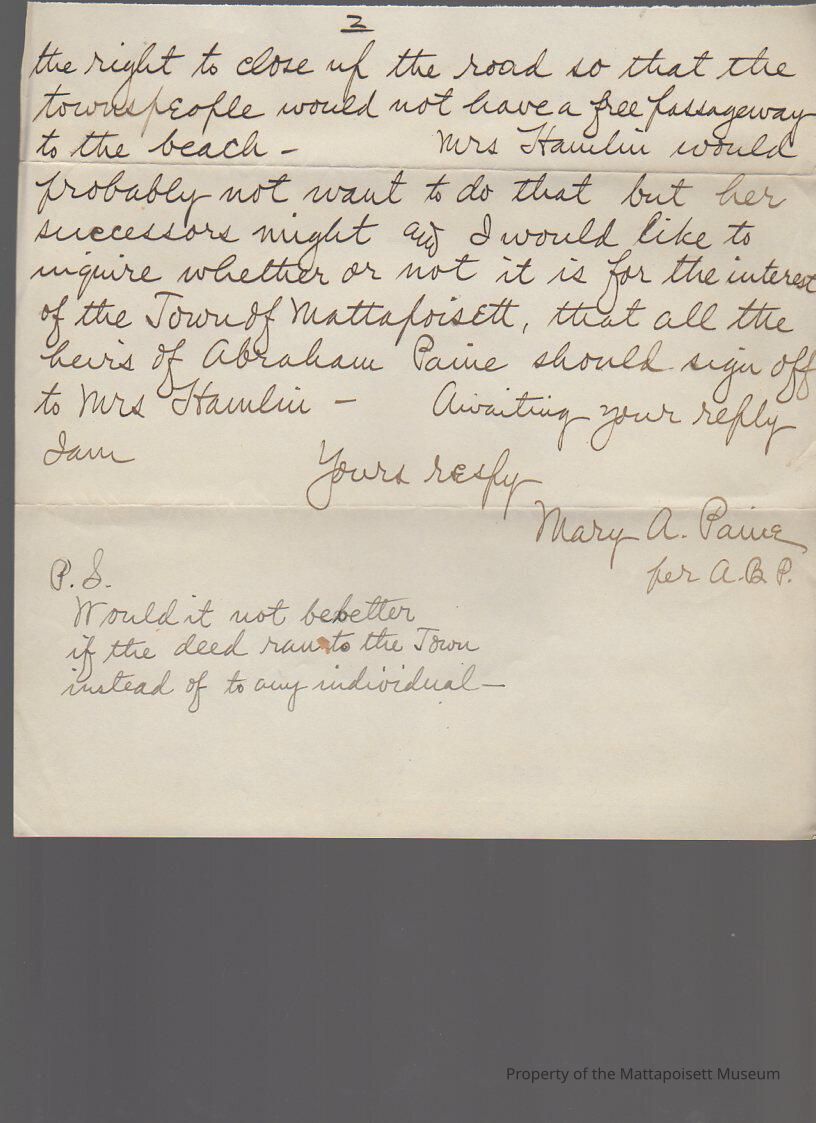 2
the right to close up the road so that the
townspeople would not have a free passageway
to the beach - Mrs Hamlin would
probably not want to do that but her
successors might and I would like to
inquire whether or not it is for the interest
of the Town of Mattapoisett, that all the
heirs of Abraham Paine should sign off
to Mrs Hamlin - Awaiting your reply
I am
Yours respy
Mary A. Paine
per A.B.P.
P.S.
Would it not be better
if the deed ran to the Town
instead of to any individual—
Property of the Mattapoisett Museum